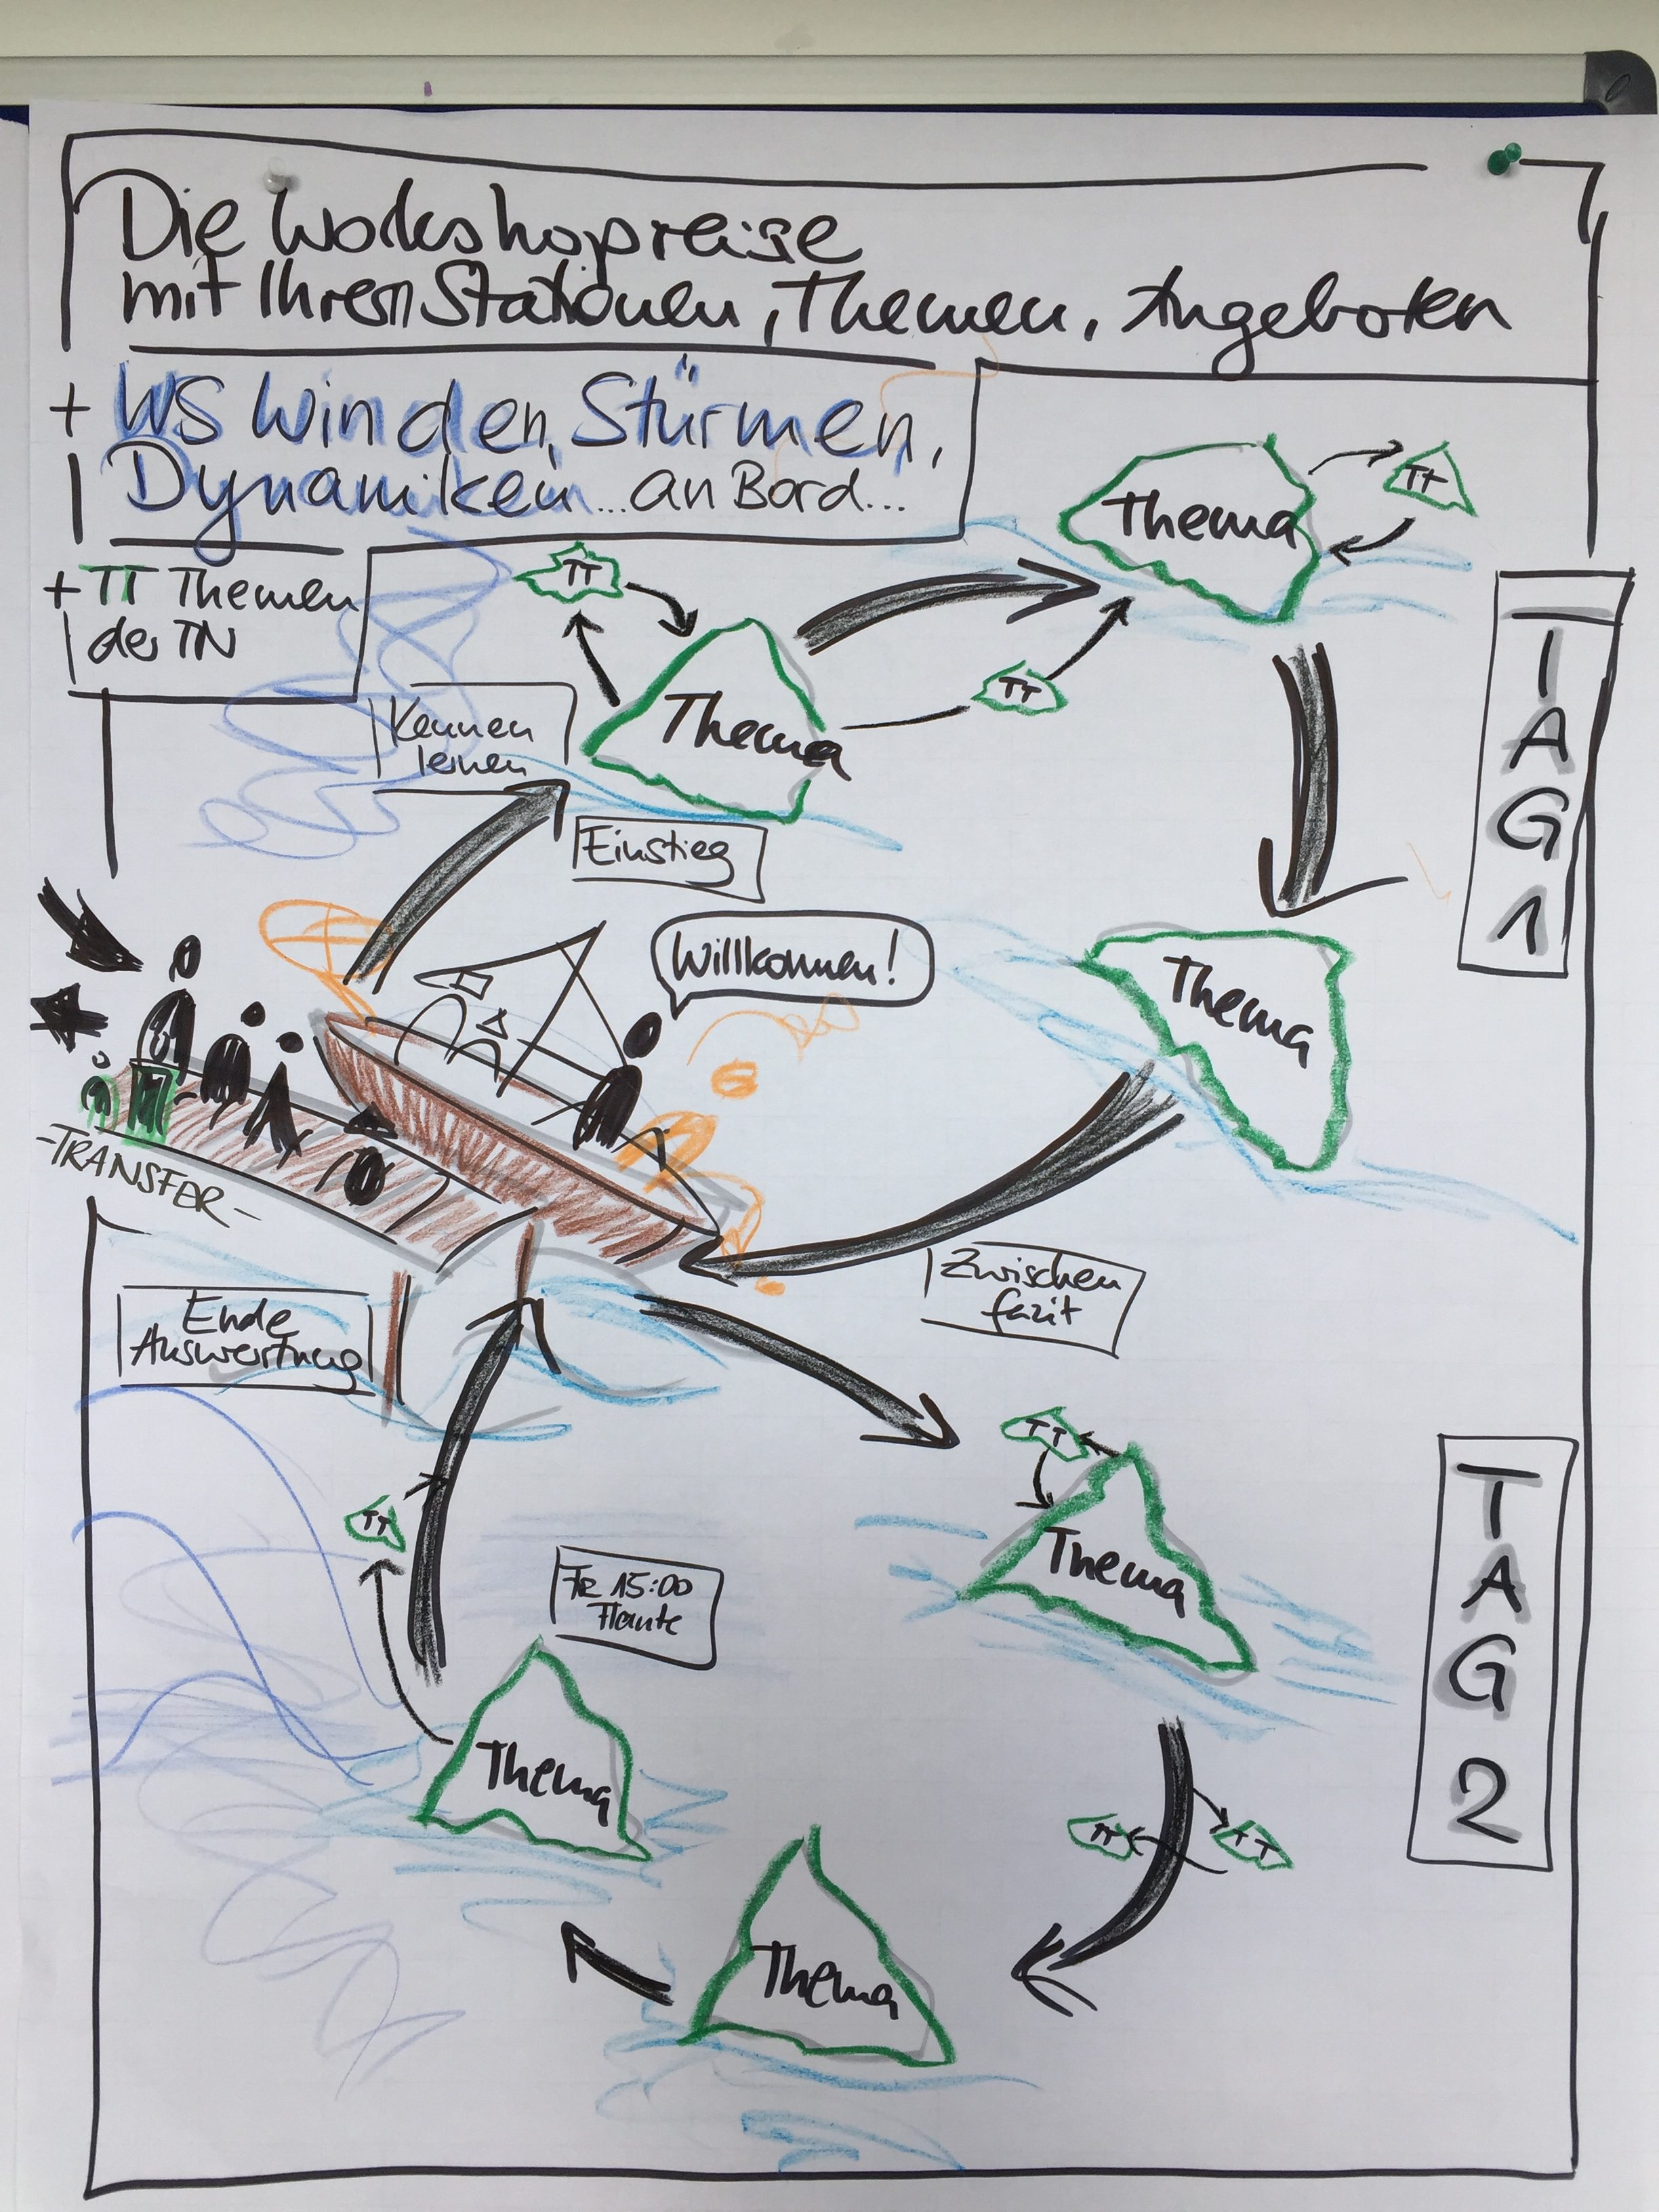 Die Workshopreise
mit Ihren Stationen, Themen, Angeboten
+ WS Winden, Stürmen,
Dynamiken... an Bord...
+ TT Themen
der TN
Thema
TT
TT
TT
Thema
Kennen
lernen
Einstieg
TAG 1
Willkommen!
Thema
-TRANSFER-
Zwischen
fazit
Ende
Auswertung
TT
Thema
TT
Fr 15:00
Flaute
TAG 2
Thema
TT
TT
Thema